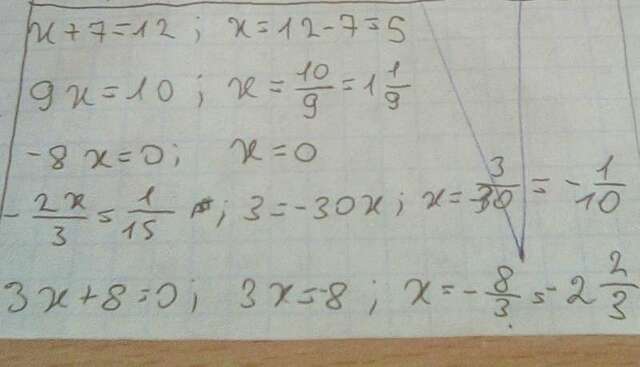 x+7=12; x=12-7=5
9x=10; x=10/9=1 1/9
-8x=0; x=0
-2x/3=1/15; 3=-30x; x=3/-30=-1/10
3x+8=0; 3x=-8; x=-8/3=-2 2/3